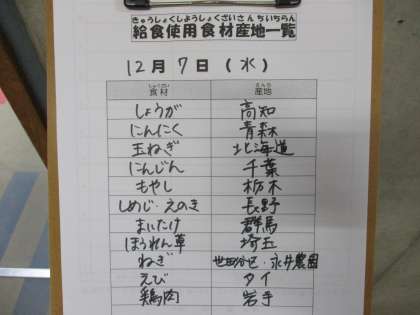 きゅうしょくしようしょくざいさんちいちらん
給食使用食材産地一覧
12月 7日 (水)
しょくざい さんち
食材 産地
しょうが 高知
にんにく 青森
玉ねぎ 北海道
にんじん 千葉
もやし 栃木
しめじ・えのき 長野
まいたけ 群馬
ほうれん草 埼玉
ねぎ 世田谷区・永井農園
えび タイ
鶏肉 岩手